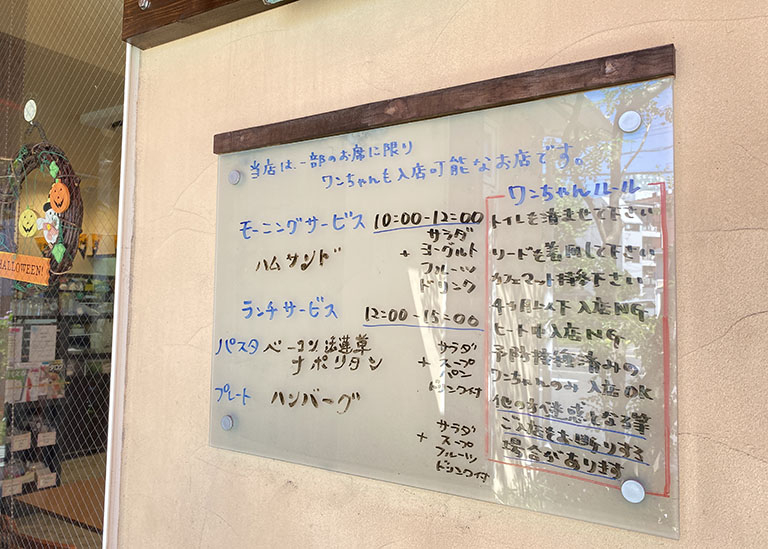 当店は、一部のお席に限り
ワンちゃんも入店可能なお店です。
モーニングサービス 10:00-12:00
ハムサンド
+
サラダ
ヨーグルト
フルーツ
ドリンク
ランチサービス 12:00-15:00
パスタ ベーコン、法蓮草
ナポリタン
+
サラダ
スープ
パン
ドリンク付
プレート ハンバーグ
+
サラダ
スープ
フルーツ
ドリンク付
ワンちゃんルール
トイレを済ませて下さい
リードを着用して下さい
カフェマット持参下さい
4ヶ月以下入店NG
ヒート中入店NG
予防接種済みの
ワンちゃんのみ入店OK
他の方へ迷惑となる等
ご入店をお断りする
場合があります
HALLOWEEN!